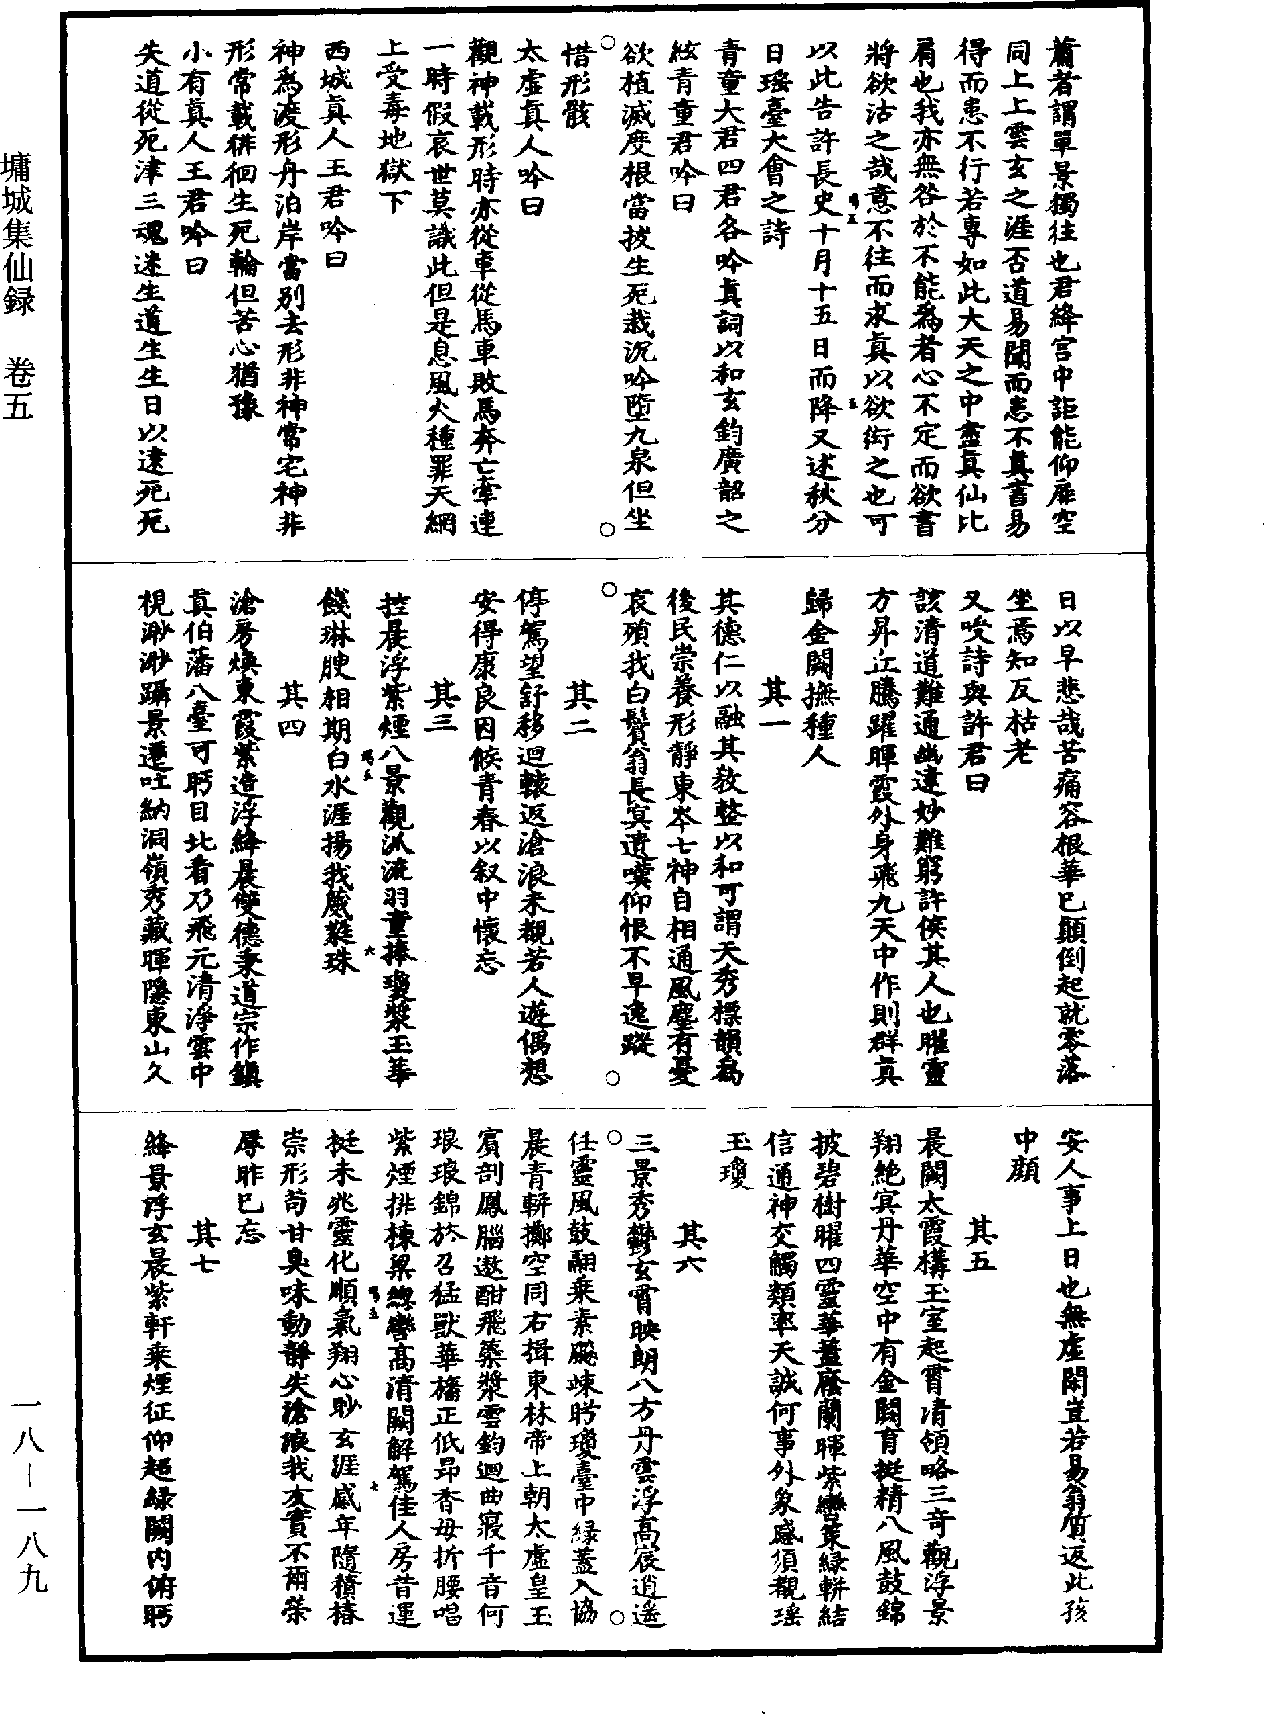 蕭者謂單景獨往也君絳宮中詎能仰飛空
同上上雲玄之涯否道易聞而患不真書易
得而患不行若專如此大天之中盡真仙比
肩也我亦無咎於不能為者心不定而欲書
將欲沽之哉意不往而求真以欲衒之也可
以此告許長史十月十五日而降又述秋分
日瑤臺大會之詩
青童大君四君各吟真詞以和玄鈞廣韶之
絃青童君吟曰
欲植滅度根當拔生死栽沉吟墮九泉但坐
惜形骸
太虛真人吟曰
觀神載形時亦從車從馬車敗馬奔亡牽連
一時假哀世莫識此但是息風火種罪天網
上受毒地獄下
西城真人王君吟曰
神為渡形舟泊岸當別去形非神常宅神非
形常載徘徊生死輪但苦心猶豫
小有真人王君吟曰
失道從死津三魂迷生道生生日以遠死死
日以早悲哉苦痛容根華已顛倒起就零落
坐焉知反枯老
又吟詩與許君曰
該清道難通幽達妙難窮許侯其人也曜靈
方昇丘騰躍暉霞外身飛九天中作則群真
歸金闕撫種人
其一
其德仁以融其教整以和可謂天秀標韻為
後民崇養形靜東岑七神自相通風塵有憂
哀殞我白鬢翁長冥遺嘆仰恨不早逸蹤
其二
停駕望舒移迴轅返滄浪未覯若人遊偶想
安得康良因候青春以叙中懷忘
其三
控晨浮紫煙八景觀汎流羽童捧瓊漿玉華
餞琳腴相期白水涯揚我葳蕤珠
其四
滄房煥東霞紫造浮絳晨雙德秉道宗作鎮
真伯藩八臺可眄目北看乃飛元清淨雲中
視渺渺躡景遷吐納洞嶺秀藏暉隱東山久
安人事上日也無虛閑豈若易翁質返此孩
中顏
其五
晨闕太霞構玉室起霄清領略三奇觀浮景
翔絕冥丹華空中有金闕育挺精八風鼓錦
披碧樹曜四靈華蓋廕蘭暉紫轡策綠軿結
信通神交觸類率天誠何事外象感須覯瑤
玉瓊
其六
三景秀鬱玄霄映朗八方丹雲浮高宸逍遙
任靈風鼓翮乘素飈竦眄瓊臺中綠蓋入協
晨青軿擲空同右揖東林帝上朝太虛皇玉
賓剖鳳腦遨酣飛蘂漿雲鈞迴曲寢千音何
琅琅錦於召猛獸華幡正低昂香母折腰唱
紫煙排棟梁總轡高清闕解駕佳人房昔運
挺未兆靈化順氣翔心眇玄涯感年隨積椿
崇形苟甘臭味動靜失滄浪我友實不爾榮
辱昨已忘
其七
絳景浮玄晨紫軒乘煙征仰超綠闕內俯眄
墉城集仙録　卷五
一八－一八九